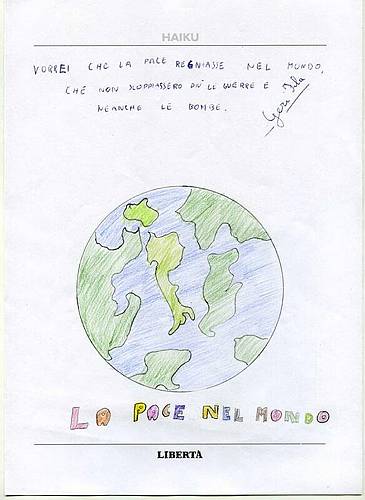 HAIKU
VORREI CHE LA PACE REGNIASSE NEL MONDO,
CHE NON SCOPPIASSERO PIÙ LE GUERRE E
NEANCHE LE BOMBE.
LA PACE NEL MONDO
LIBERTÀ